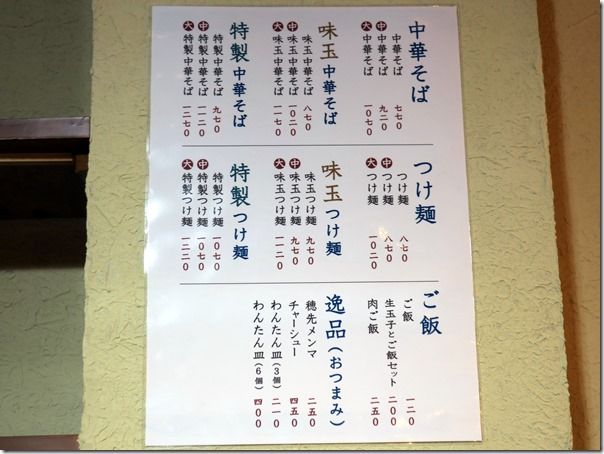 中華そば
中華そば 七七〇
中 中華そば 九二〇
大 中華そば 一〇七〇
味玉中華そば
味玉中華そば 八七〇
中 味玉中華そば 一〇二〇
大 味玉中華そば 一一七〇
特製中華そば
特製中華そば 九七〇
中 特製中華そば 一一二〇
大 特製中華そば 一二七〇
つけ麺
つけ麺 八七〇
中 つけ麺 八七〇
大 つけ麺 一〇二〇
味玉つけ麺
味玉つけ麺 九七〇
中 味玉つけ麺 九七〇
大 味玉つけ麺 一一二〇
特製つけ麺
特製つけ麺 一〇七〇
中 特製つけ麺 一〇七〇
大 特製つけ麺 一二二〇
ご飯
ご飯 一二〇
生玉子とご飯セット 二〇〇
肉ご飯 二五〇
逸品(おつまみ)
穂先メンマ 二五〇
チャーシュー 四五〇
わんたん皿(3個) 二一〇
わんたん皿(6個) 四〇〇